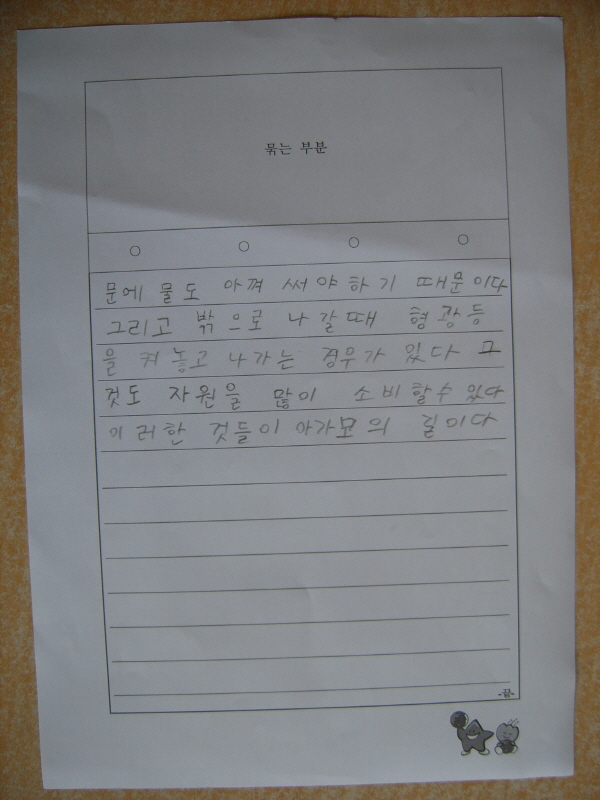 묶는 부분
문에 물도 아껴 써야하기 때문이다
그리고 밖으로 나갈때 형광등
을 켜놓고 나가는 경우가 있다 그
것도 자원을 많이 소비할수 있다
이러한 것들이 아가모의 길이다
-끝-